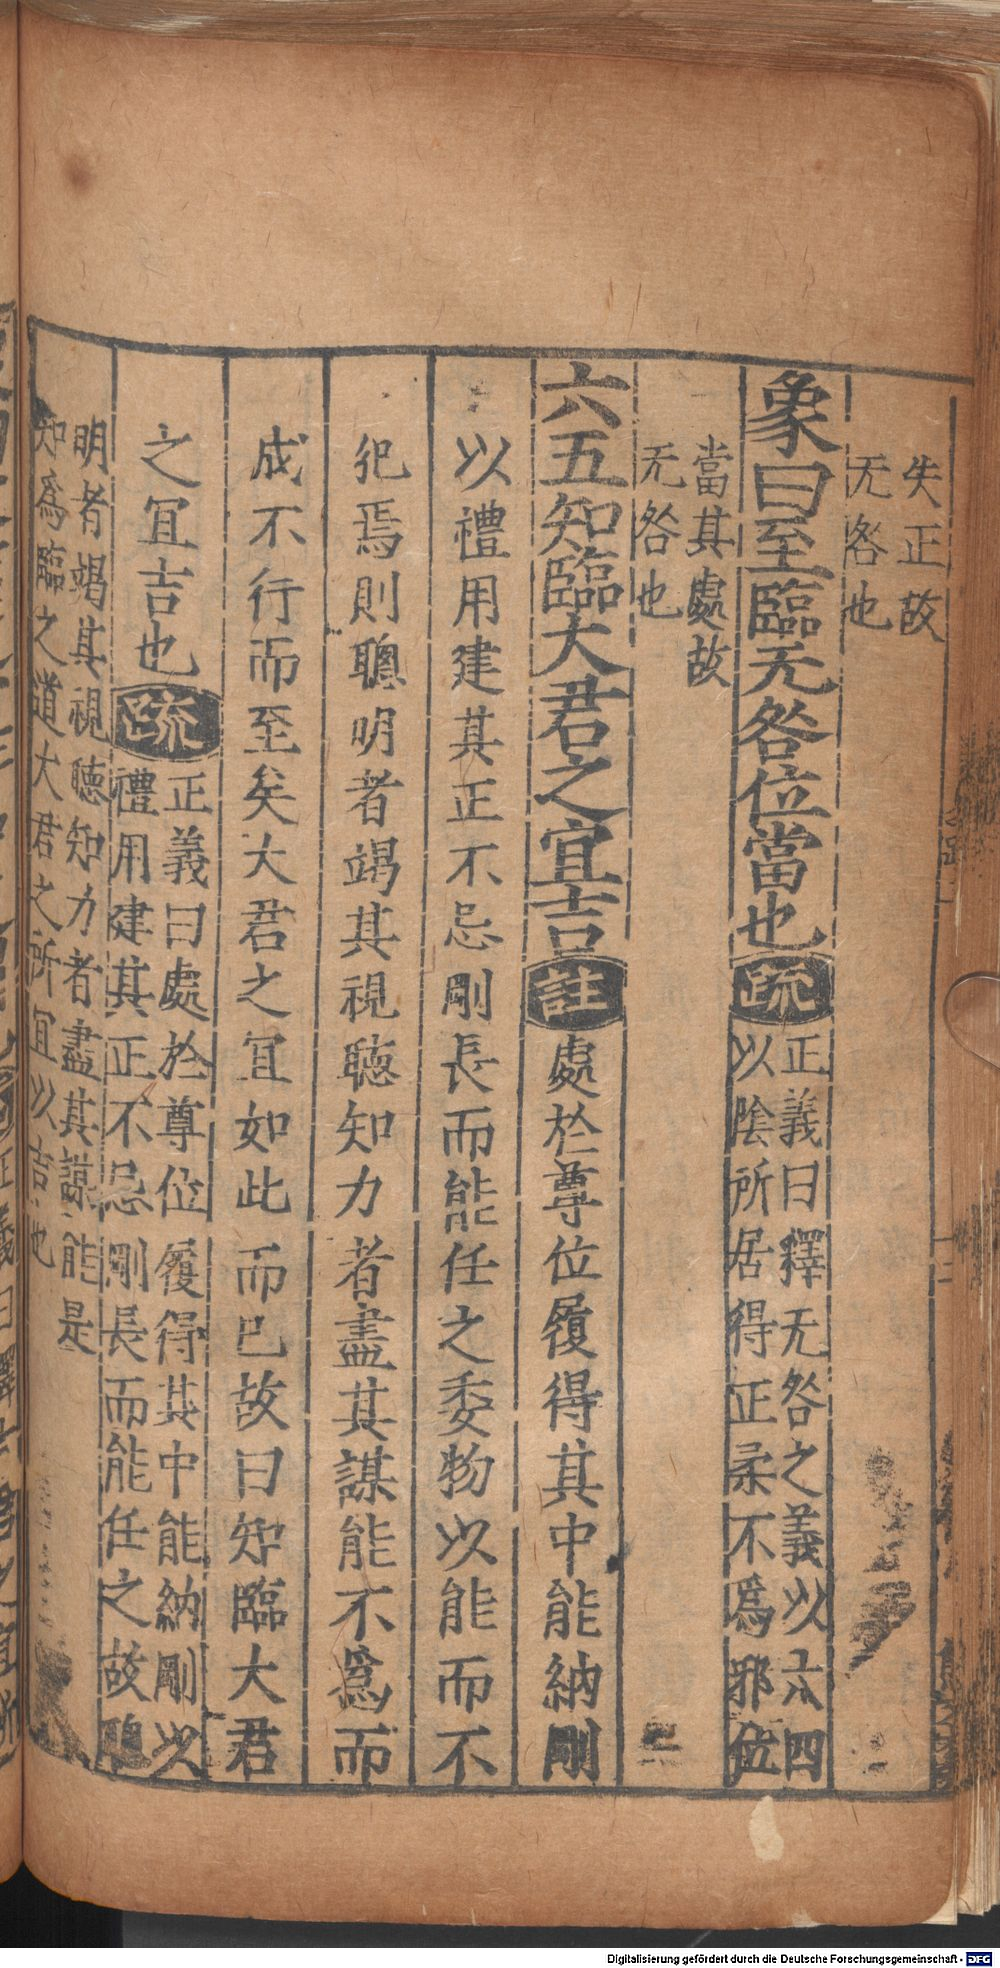 失正故
无咎也
象曰至臨无咎位當也疏正義曰釋无咎之義以六四
以陰所居得正柔不爲邪位
當其處故
无咎也
六五知臨大君之宜吉註處於尊位履得其中能納剛
以禮用建其正不忌剛長而能任之委物以能而不
犯焉則聰明者竭其視聽知力者盡其謀能不爲而
成不行而至矣大君之宜如此而已故曰知臨大君
之宜吉也疏正義曰處於尊位履得其中能納剛以
禮用建其正不忌剛長而能任之故聰
明者竭其視聽知力者盡其謀能是
知爲臨之道大君之所宜以吉也
Digitalisierung gefördert durch die Deutsche Forschungsgemeinschaft - DFG